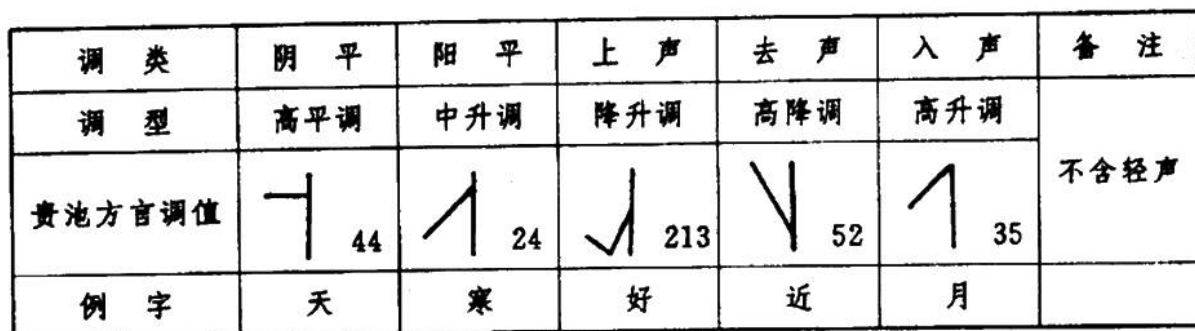 调类 阴平 阳平 上声 去声 入声 备注
调型 高平调 中升调 降升调 高降调 高升调
贵池方言调值 44 24 213 52 35 不含轻声
例字 天 寒 好 近 月